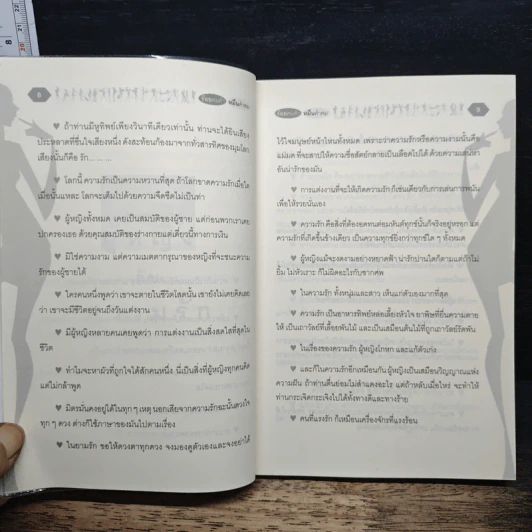 8
♥ ถ้าท่านมีหูทิพย์เพียงวินาทีเดียวเท่านั้น ท่านจะได้ยินเสียง
ประหลาดที่ชื่นใจเสียงหนึ่ง ดังสะท้อนก้องมาจากทั่วสารทิศของมุมโลก
เสียงนั้นก็คือ รัก... ... ...
♥ โลกนี้ ความรักเป็นความหวานที่สุด ถ้าโลกขาดความรักเมื่อใด
เมื่อนั้นแหละ โลกจะเต็มไปด้วยความจืดชืดไม่เป็นท่า
♥ ผู้หญิงทั้งหมด เคยเป็นสมบัติของผู้ชาย แต่ก่อนพวกเราเคย
ปกครองเธอ ด้วยคุณสมบัติของร่างกายแต่เดี๋ยวนี้ทางการเงิน
♥ มิใช่ความงาม แต่ความเมตตากรุณาของหญิงที่จะชนะความ
รักของผู้ชายได้
♥ ใครคนหนึ่งพูดว่า เขาจะตายในชีวิตโสดนั้น เขายังไม่เคยคิดเลย
ว่า เขาจะมีชีวิตอยู่จนถึงวันแต่งงาน
♥ มีผู้หญิงหลายคนเคยพูดว่า การแต่งงานเป็นสิ่งสดใสที่สุดใน
ชีวิต
♥ ทำไมจะหาผัวที่ถูกใจได้สักคนหนึ่ง นี่เป็นสิ่งที่ผู้หญิงทุกคนคิด
แต่ไม่กล้าพูด
♥ มิตรมั่นคงอยู่ได้ในทุก ๆ เหตุ นอกเสียจากความรักฉะนั้นดวงใจ
ทุก ๆ ดวง ต่างก็ใช้ภาษาของมันไปตามเรื่อง
♥ ในยามรัก ขอให้ดวงตาทุกดวง จงมองดูตัวเองและจงอย่าได้
9
ไว้ใจมนุษย์หน้าไหนทั้งหมด เพราะว่าความรักหรือความงามนั้นคือ
แม่มด ที่จะสาปให้ความซื่อสัตย์กลายเป็นเลือดไปได้ ด้วยความเสน่หา
อันน่ารักของมัน
♥ การแต่งงานที่จะให้เกิดความรัก ก็เช่นเดียวกับการเล่นการพนัน
เพื่อให้รวยนั่นเอง
♥ ความรัก คือสิ่งที่ต้องอดทนต่อมหันต์ทุกข์นั้นก็จริงอยู่หรอก แต่
ความรักที่เกิดขึ้นข้างเดียว เป็นความทุกข์ยิ่งกว่าทุกข์ใด ๆ ทั้งหมด
♥ ผู้หญิงแม้จะงดงามอย่างหยาดฟ้า น่ารักปานใดก็ตามแต่ถ้าไม่
ยิ้ม ไม่หัวเราะ ก็ไม่ผิดอะไรกับซากศพ
♥ ในความรัก ทั้งหนุ่มและสาว เห็นแก่ตัวเองมากที่สุด
♥ ความรัก เป็นอาหารทิพย์หล่อเลี้ยงหัวใจ ยาพิษที่ยื่นความตาย
ให้ เป็นเถาวัลย์ที่เลื้อยพันไม้ และเป็นเสมือนต้นไม้ที่ถูกเถาวัลย์รัดพัน
♥ ในเรื่องของความรัก ผู้หญิงโกหก และแก้ตัวเก่ง
♥ และก็ในความรักอีกเหมือนกัน ผู้หญิงเป็นเสมือนวิญญาณแห่ง
ความฝัน ถ้าท่านตื่นย่อมไม่สำแดงอะไร แต่ถ้าหลับเมื่อไหร่ จะทำให้
ท่านกระเจิดกระเจิงไปได้ทั้งทางดีและทางร้าย
♥ คนที่แรงรัก ก็เหมือนเครื่องจักรที่แรงร้อน